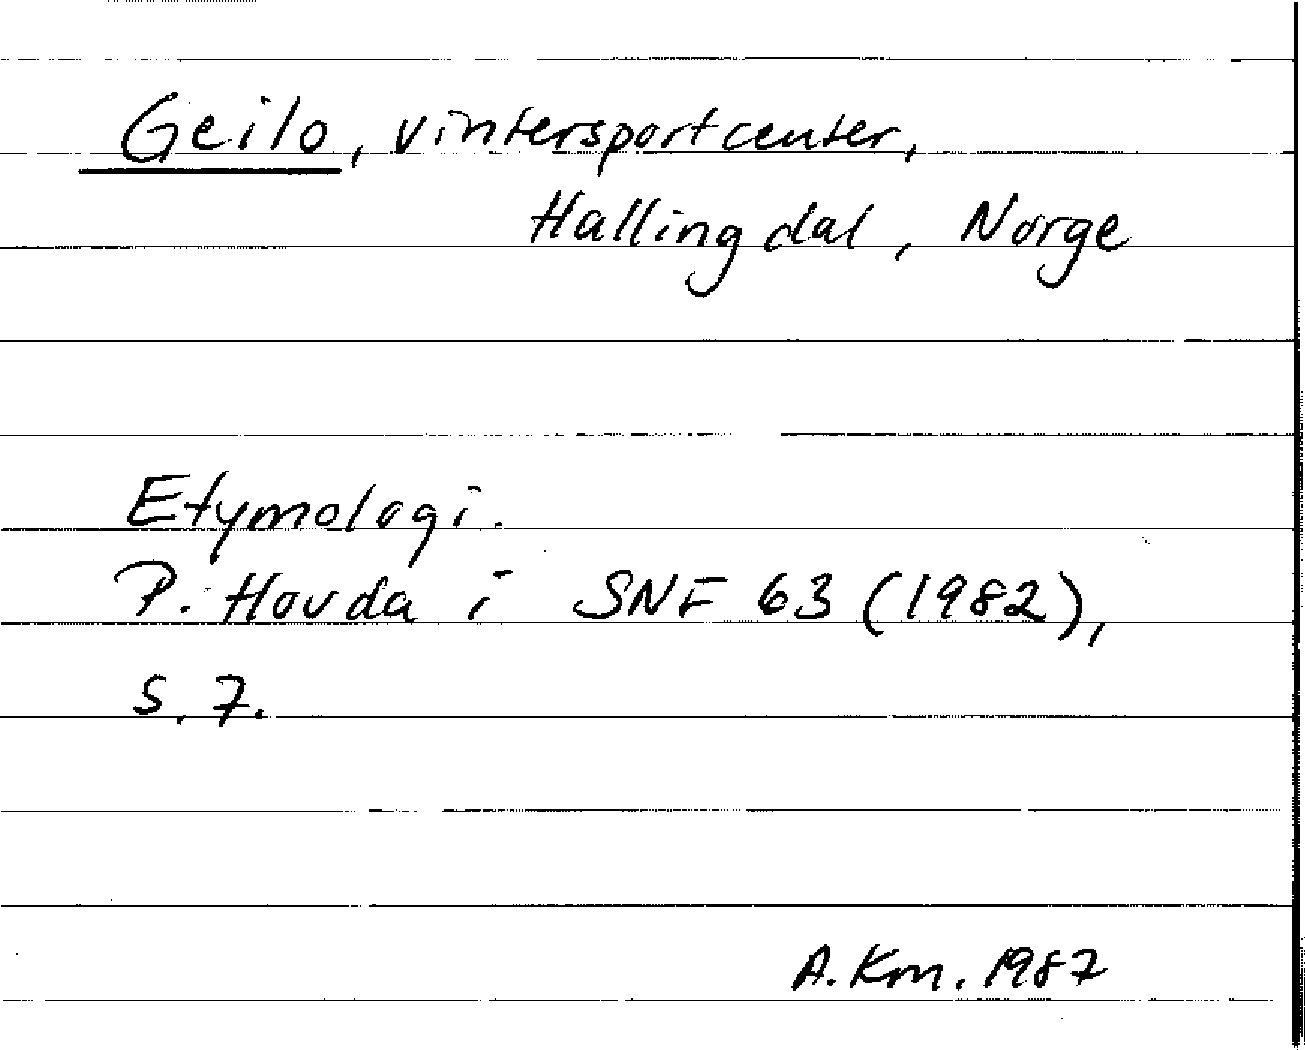 Geilo, vintersportcenter,
Hallingdal, Norge
Etymologi.
P. Hovda i SNF 63 (1982),
s. 7.
A. Km. 1987